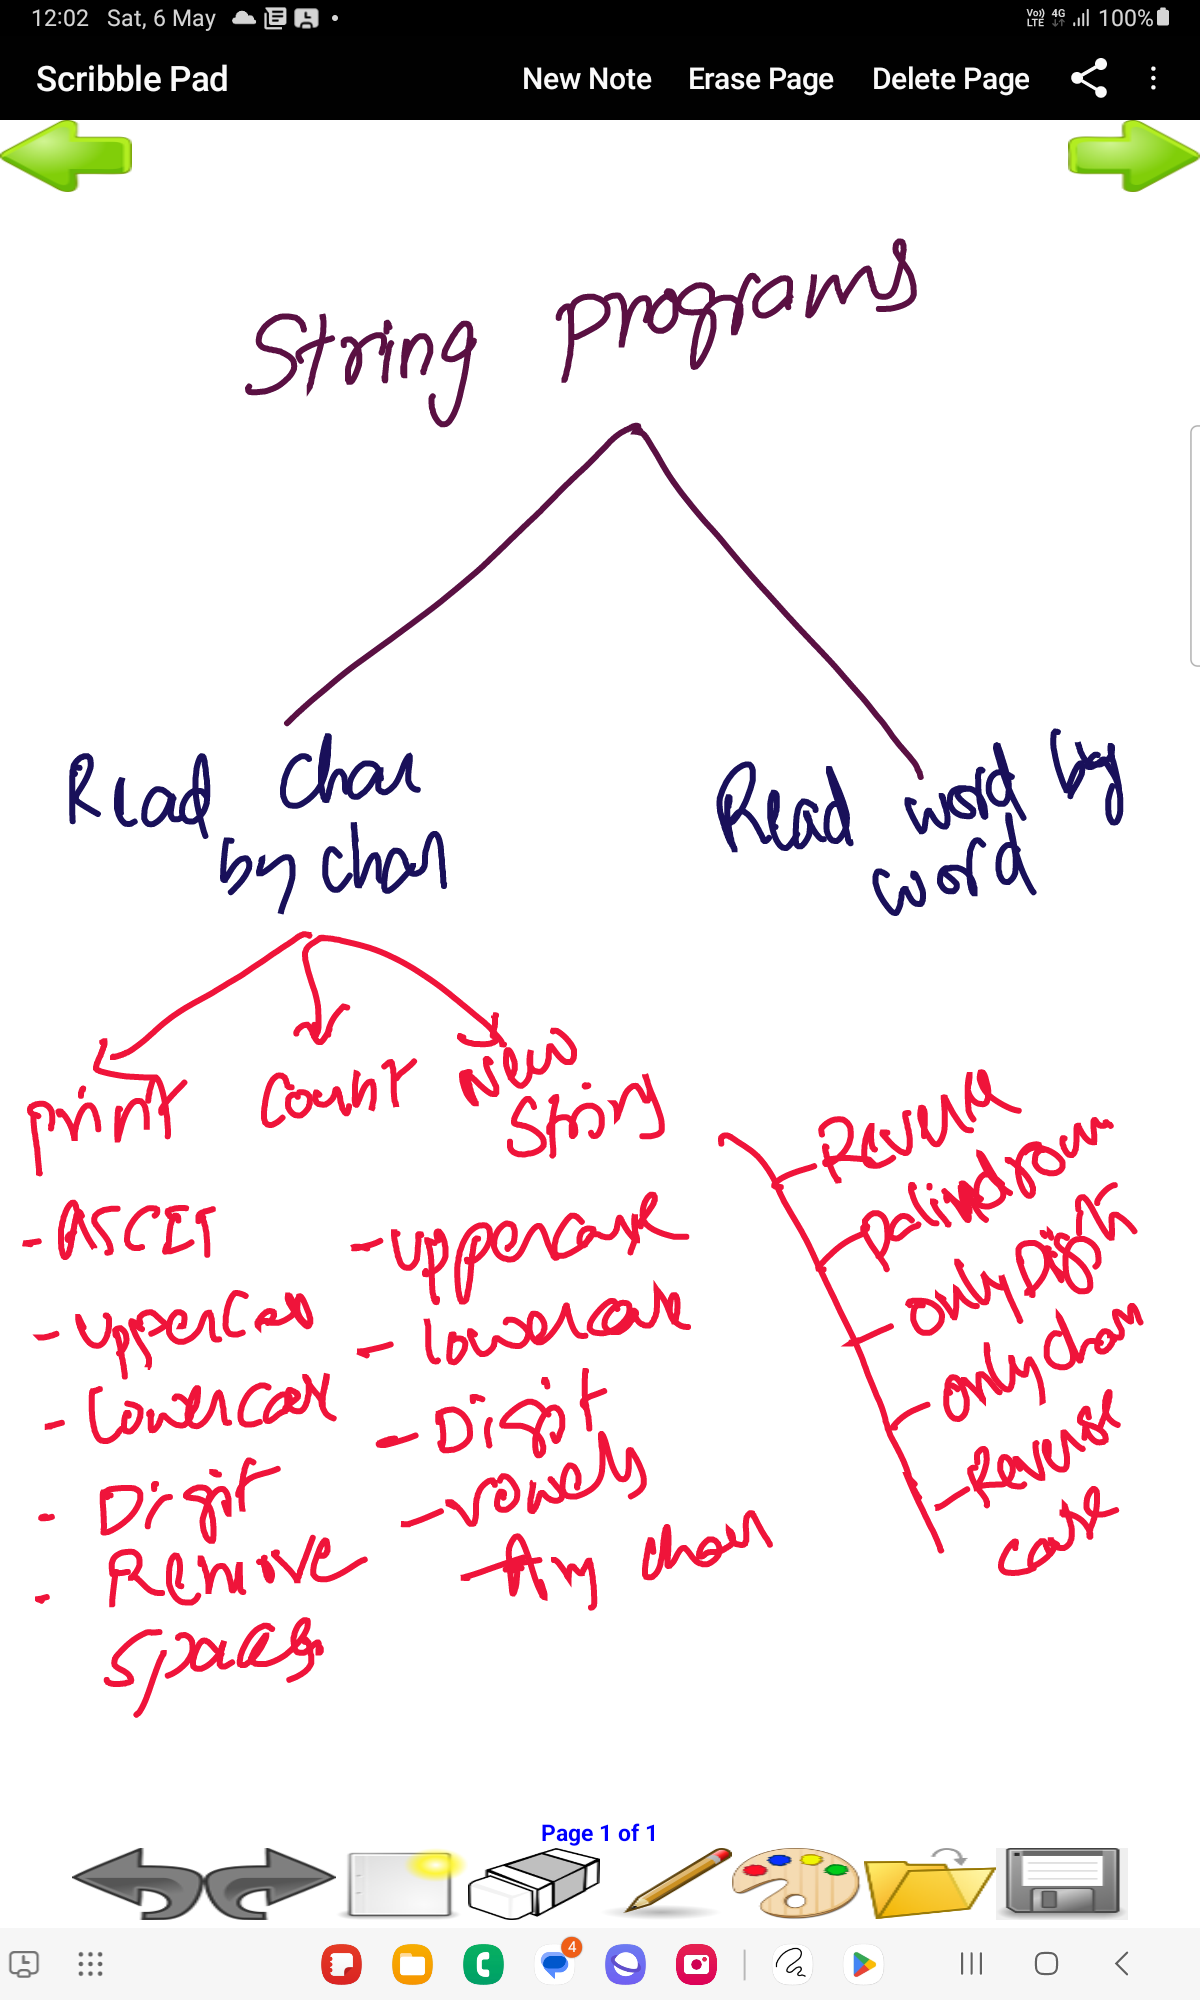 12:02 Sat, 6 May
Vo)) LTE 4G 100%
Scribble Pad New Note Erase Page Delete Page
String programs
Read char
by char
Read word by
word
print
Count
New
String
- ASCII
- Uppercase
- Lowercase
- Digit
- Remove
spaces
- Uppercase
- Lowercase
- Digit
- Vowels
- Any char
- Reverse
- palindrom
- only Digits
- only char
- Reverse
case
Page 1 of 1
4